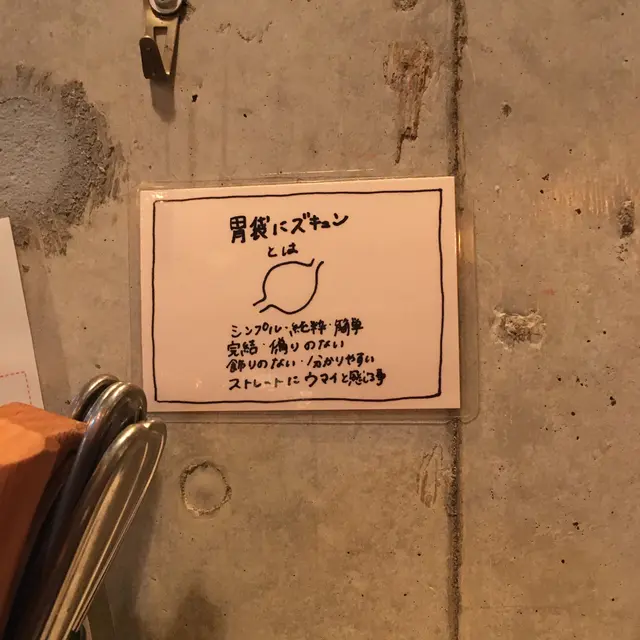 胃袋にズキュン
とは
シンプル・純粋・簡単
完結・偽りのない
飾りのない・分かりやすい
ストレートにウマイと感じる事